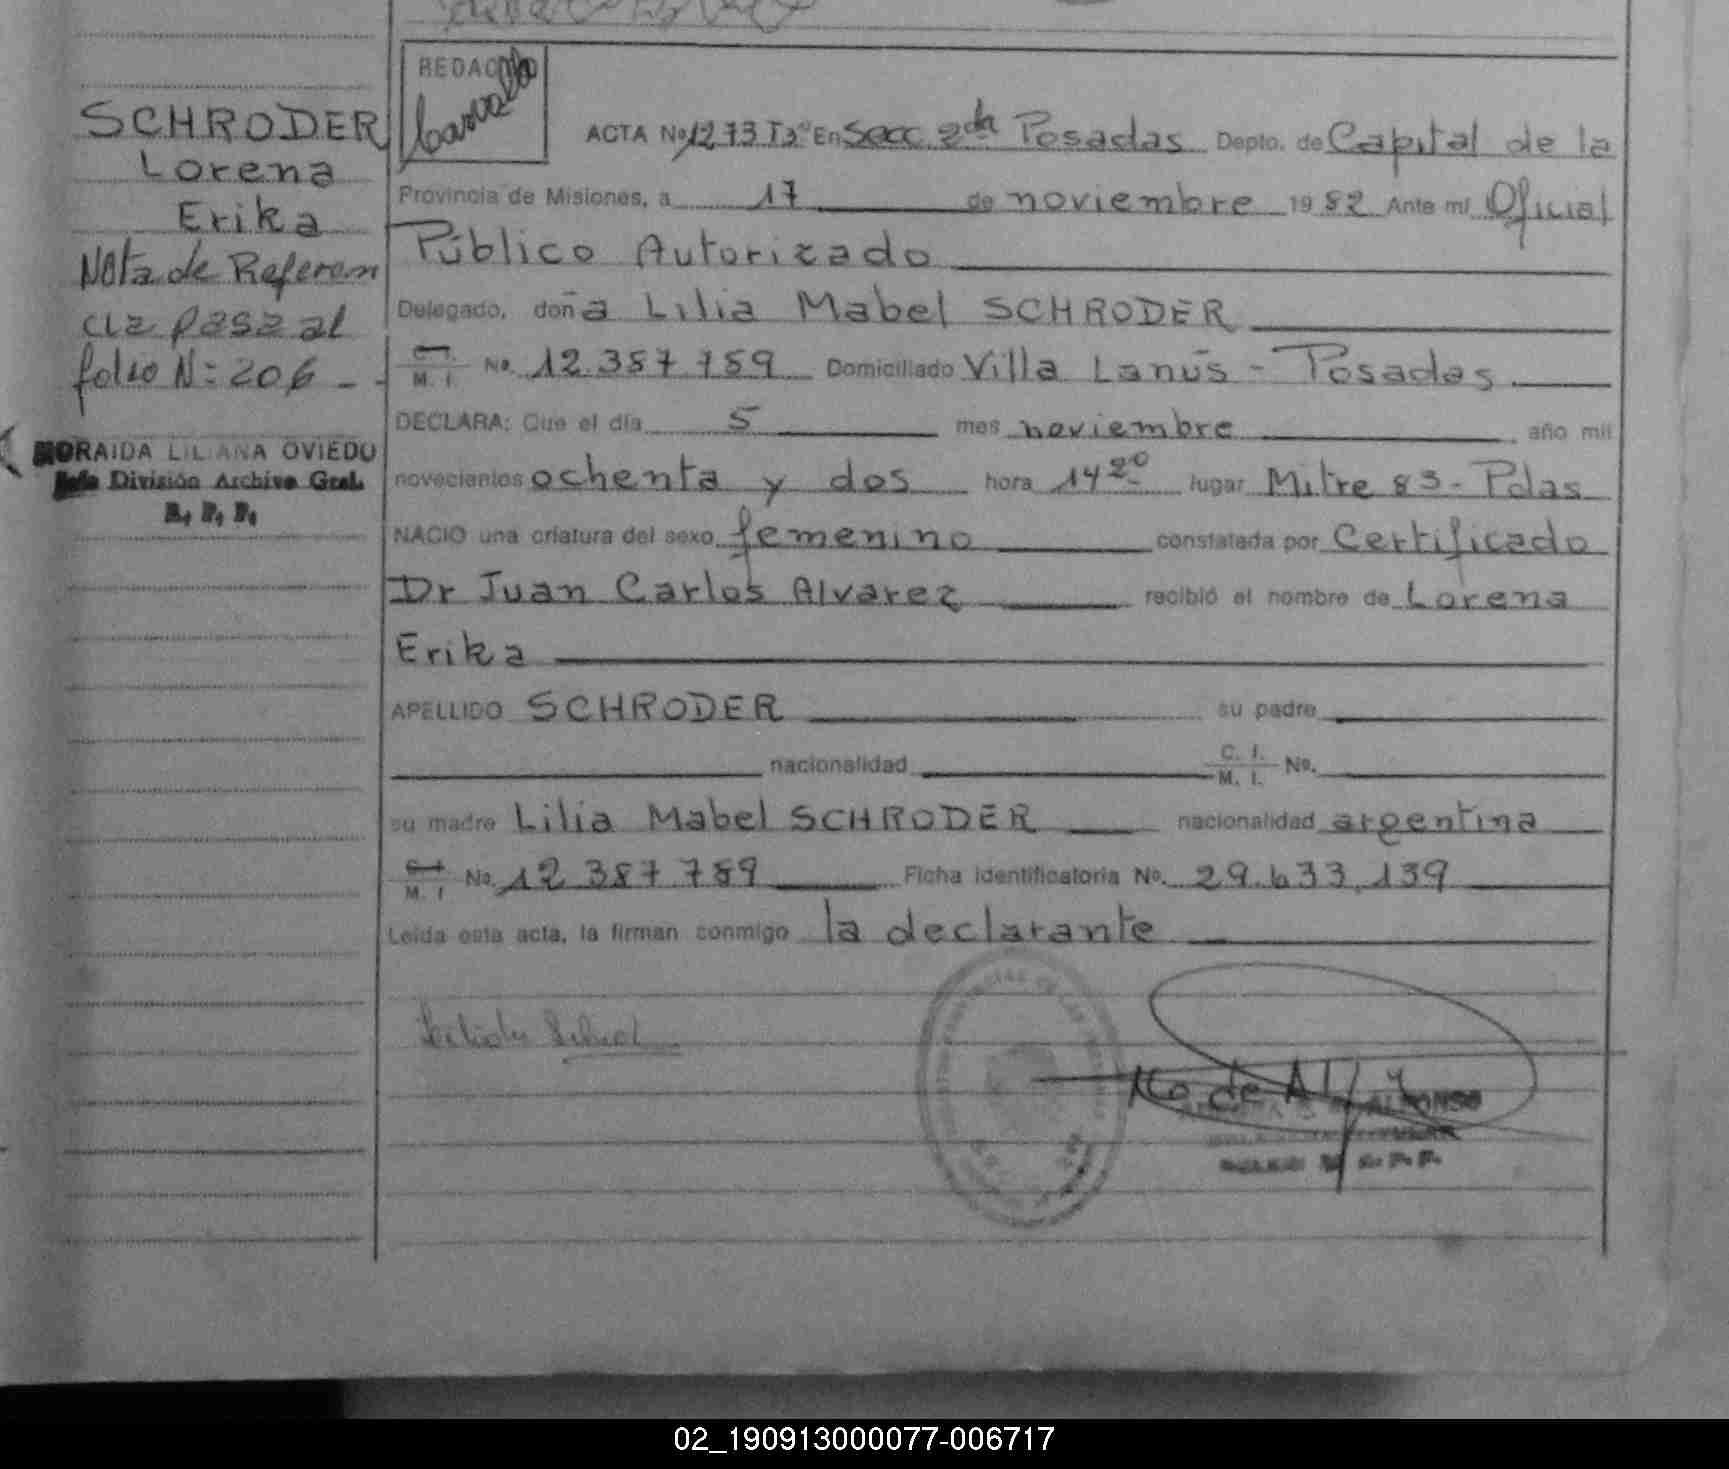 SCHRODER
Lorena
Erika
Nota de Referen
cia pasa al
folio N: 206 - -
MORAIDA LILIANA OVIEDO
Jefe División Archivo Gral.
R. P. P.
REDAC
ACTA Nº 1273 Tº En Secc. 2da Posadas Depto. de Capital de la
Provincia de Misiones, a 17 de noviembre 1982 Ante mí Oficial
Público Autorizado
Delegado, doña Lilia Mabel SCHRODER
M. I. No. 12.387.789 Domiciliado Villa Lanús - Posadas
DECLARA: Que el día 5 mes noviembre año mil
novecientos ochenta y dos hora 14 20 lugar Mitre 83 - Pdas
NACIO una criatura del sexo femenino constatada por Certificado
Dr Juan Carlos Alvarez recibió el nombre de Lorena
Erika
APELLIDO SCHRODER su padre
nacionalidad C. I. M. I. No.
su madre Lilia Mabel SCHRODER nacionalidad argentina
M. I No. 12 387 789 Ficha Identificatoria No. 29.633.139
Leída esta acta, la firman conmigo la declarante
ALFONSO
02_190913000077-006717